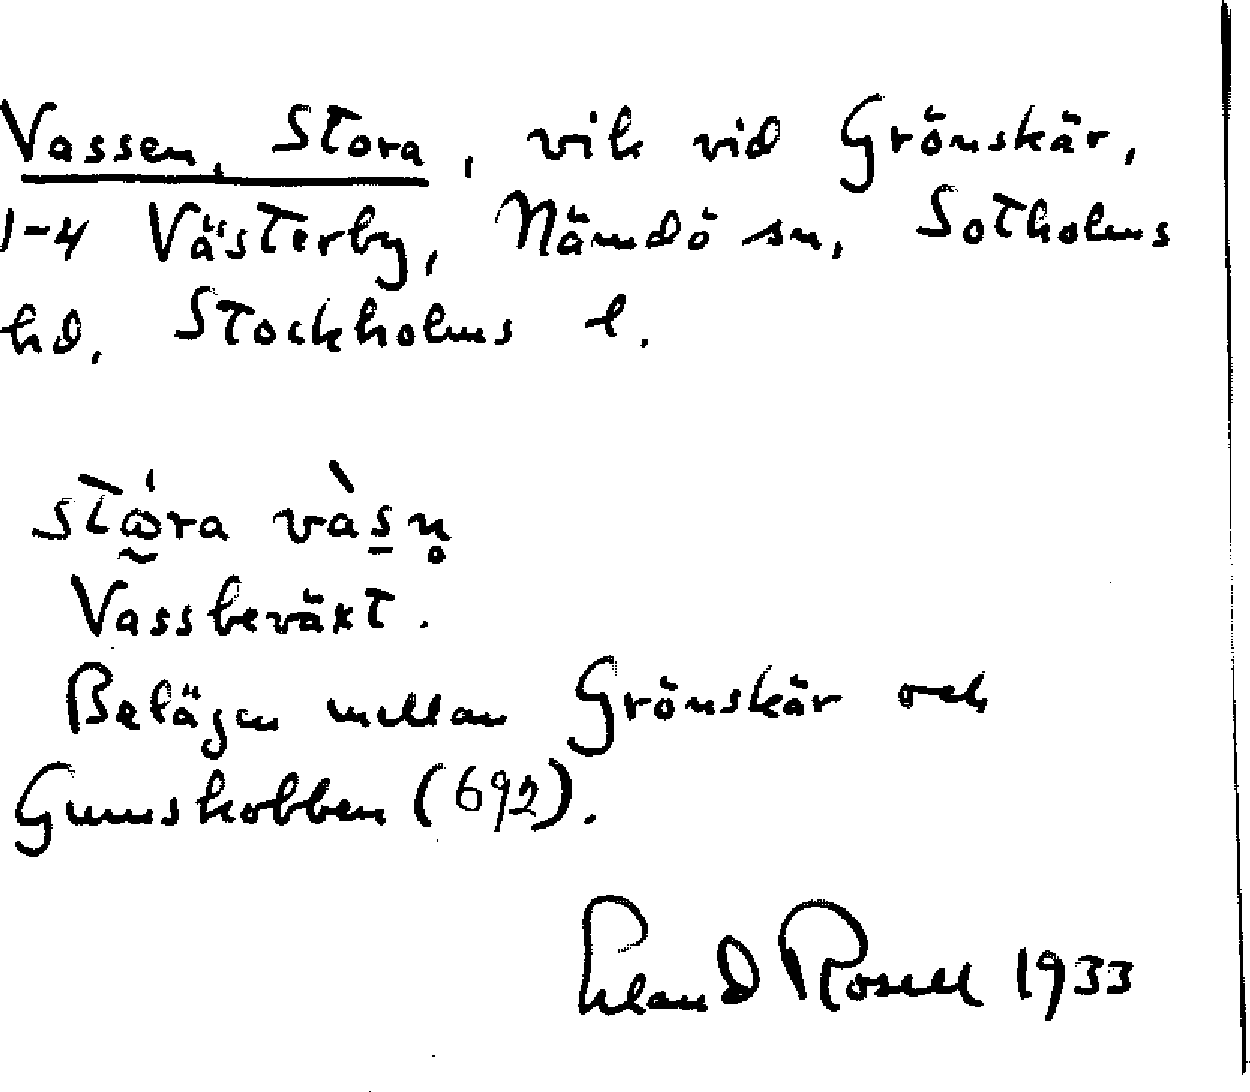 Vassen, Stora, vik vid Grönskär,
1-4 Västerby, Nämdö sn, Sotholms
hd, Stockholms l.
stǻra vàs̲n̥
Vassbeväxt.
Belägen mellan Grönskär och
Gumskobben (692).
Erland Rosell 1933